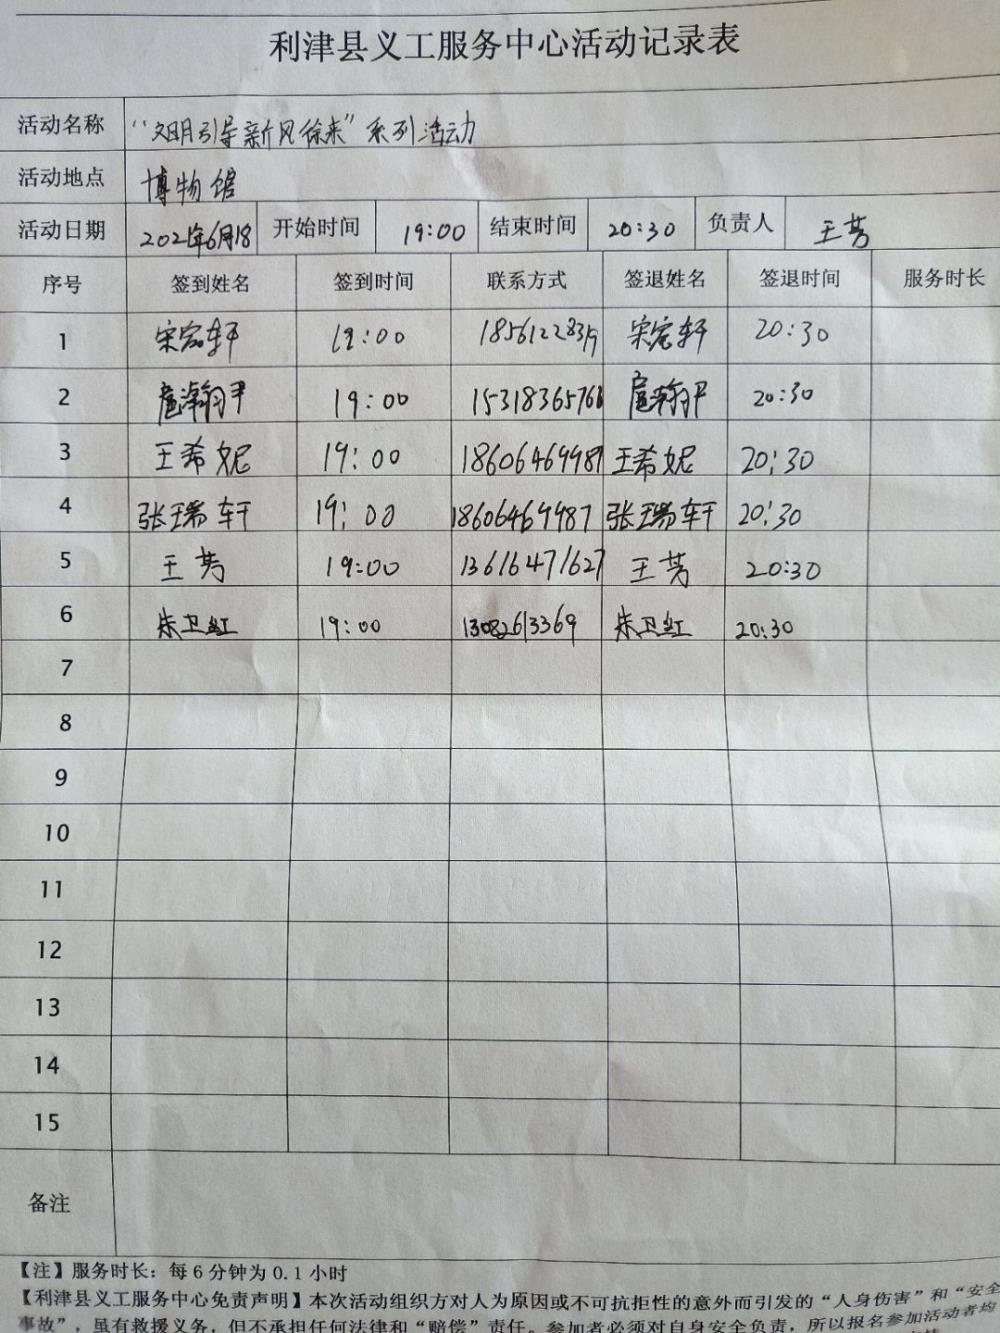 利津县义工服务中心活动记录表
活动名称 “文明引导新风徐来”系列活动
活动地点 博物馆
活动日期 2021年6月18 开始时间 19:00 结束时间 20:30 负责人 王芳
序号 签到姓名 签到时间 联系方式 签退姓名 签退时间 服务时长
1 宋宏轩 19:00 宋宏轩 20:30
2 扈瀚尹 19:00 15318365768 扈瀚尹 20:30
3 王希妮 19:00 18606469987 王希妮 20:30
4 张瑞轩 19:00 18606469987 张瑞轩 20:30
5 王芳 19:00 13616471627 王芳 20:30
6 朱卫红 19:00 13082613369 朱卫红 20:30
7
8
9
10
11
12
13
14
15
备注
【注】服务时长：每6分钟为0.1小时
【利津县义工服务中心免责声明】本次活动组织方对人为原因或不可抗拒性的意外而引发的“人身伤害”和“安全
事故”，虽有救援义务，但不承担任何法律和“赔偿”责任。参加者必须对自身安全负责，所以报名参加活动者均